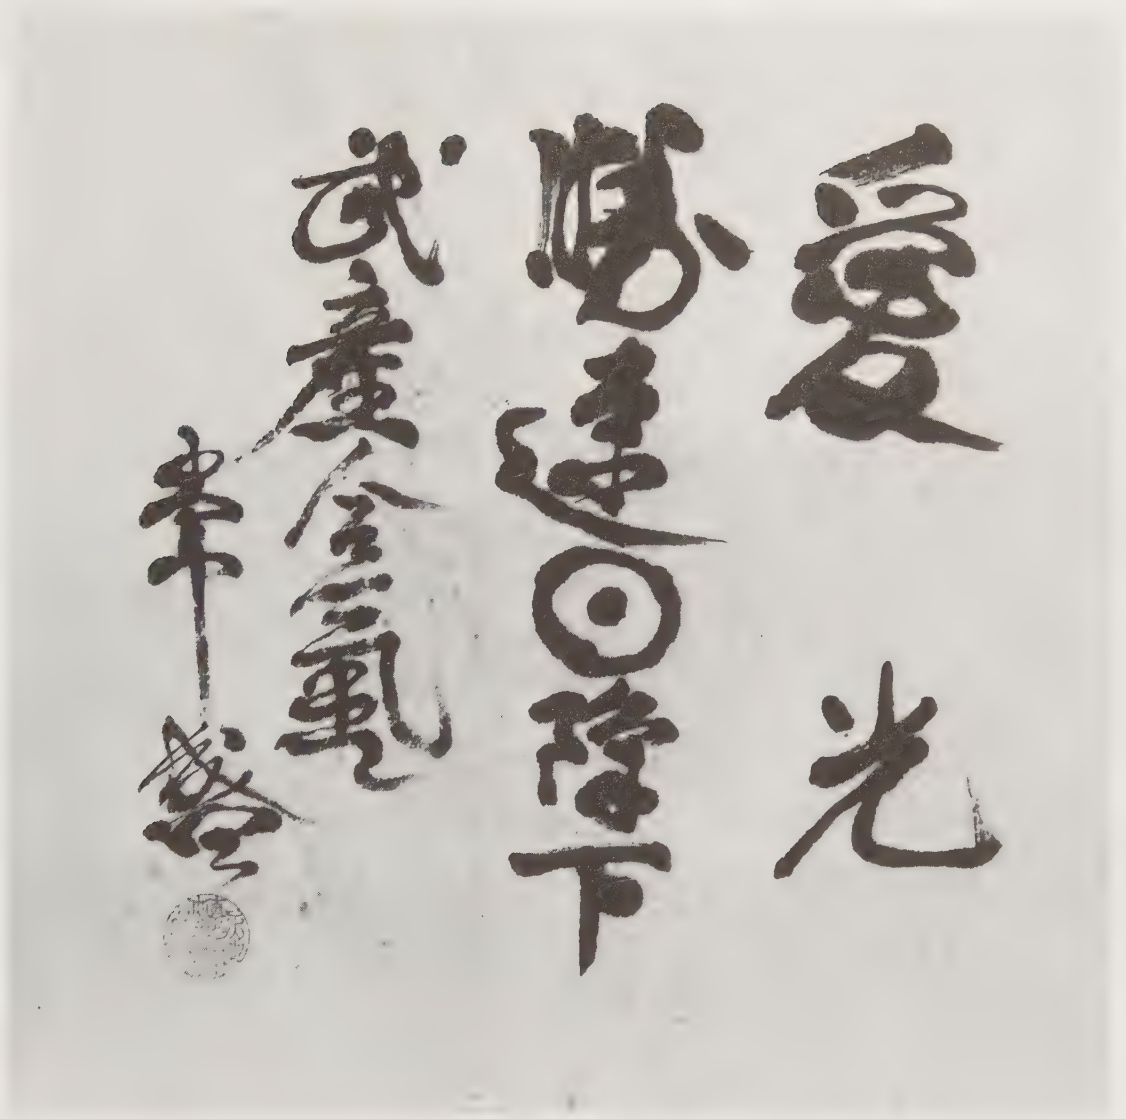 愛 光
勝速日降下
武産合氣
常盛